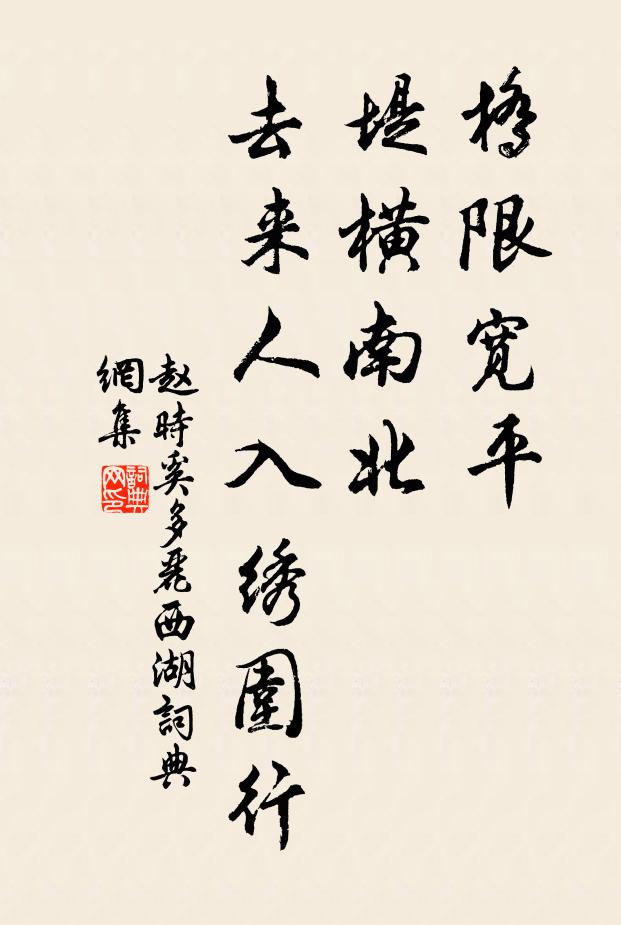 橋限寛平
堤橫南北
去来人入绣圍行
赵時奚多麗西湖詞典
網集
詞典
网印